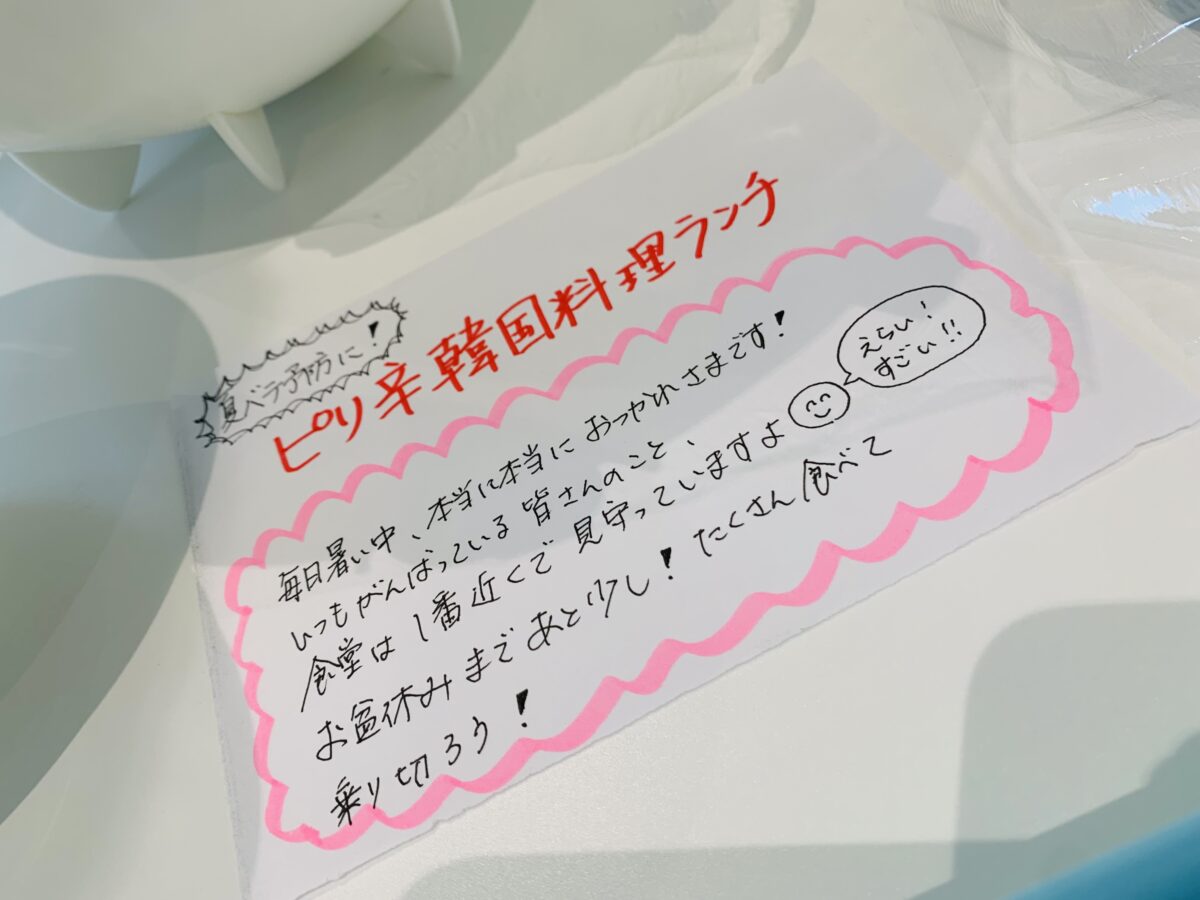 夏バテ予防に!
ピリ辛韓国料理ランチ
毎日暑い中、本当に本当におつかれさまです!
いつもがんばっている皆さんのこと、
食堂は1番近くで見守っていますよ
えらい!
すごい!!
お盆休みまであと少し!たくさん食べて
乗り切ろう!